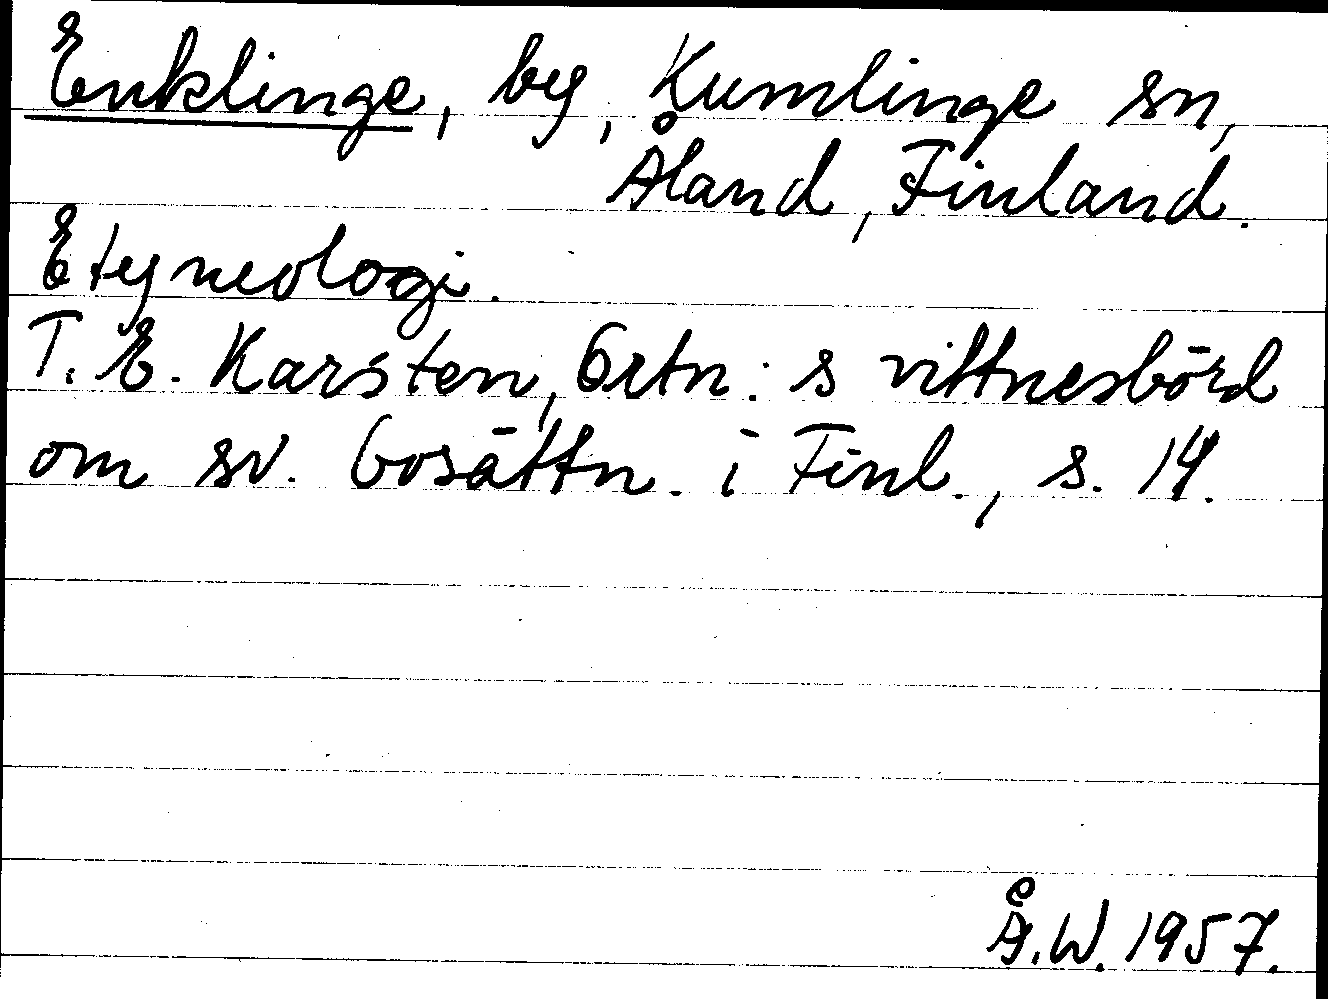 Enklinge, by, Kumlinge sn,
Åland, Finland.
Etymologi.
T. E. Karsten, Ortn:s vittnesbörd
om sv. bosättn. i Finl., s. 14.
Å.W. 1957.